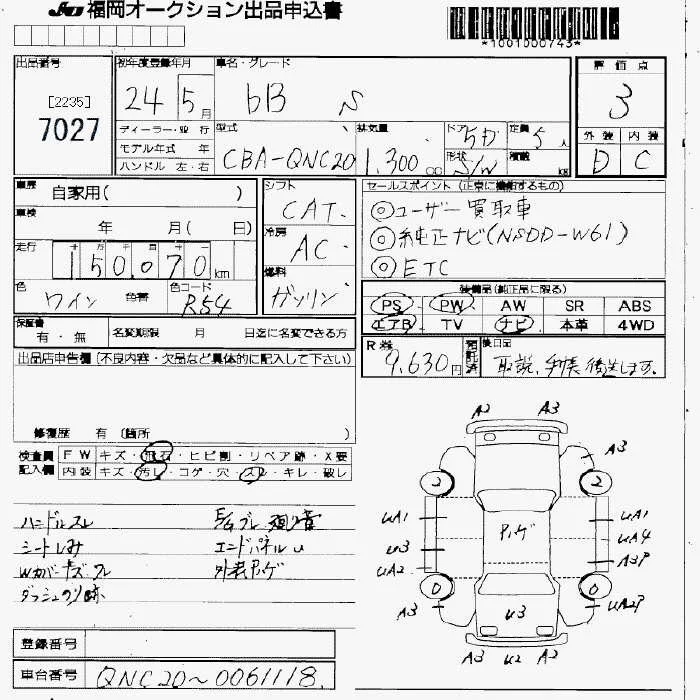 JU 福岡オークション出品申込書
*1001000743*
出品番号
[2235]
7027
初年度登録年月
24 5月
車名・グレード
bB S
評価点
3
外装 内装
D C
ディーラー・並行
モデル年式 年
ハンドル 左・右
型式
CBA-QNC20
排気量
1,300cc
ドア 5D
形状 S/W
定員 5人
積載 kg
車歴
自家用( )
車検
年 月( 日)
走行
150,070km
色
ワイン 色替
色コード
R54
シフト
CAT.
冷房
AC
燃料
ガソリン
セールスポイント(正常に機能するもの)
◎ユーザー買取車
◎純正ナビ(NSDD-W61)
◎ETC
装備品(純正品に限る)
PS PW AW SR ABS
エアB TV ナビ 本革 4WD
保証書
有・無
名変期限 月 日迄に名変できる方
R券
9,630円
預託済
後日品
取説、手帳後送します。
出品店申告欄(不良内容・欠品など具体的に記入して下さい)
修復歴 有 (箇所 )
検査員記入欄
FW キズ・飛石・ヒビ割・リペア跡・X要
内装 キズ・汚レ・コゲ・穴・スレ・キレ・破レ
ハンドルスレ
シートしみ
Wカバーキズ スレ
ダッシュのり跡
エンドパネルU
外装
A2 A3
A3
2 2
UA1 UA1
UA4
U3 A3P
UA2
0 0
A3 UA2P
U3
A3 U2 A2
登録番号
車台番号 QNC20~0061118.